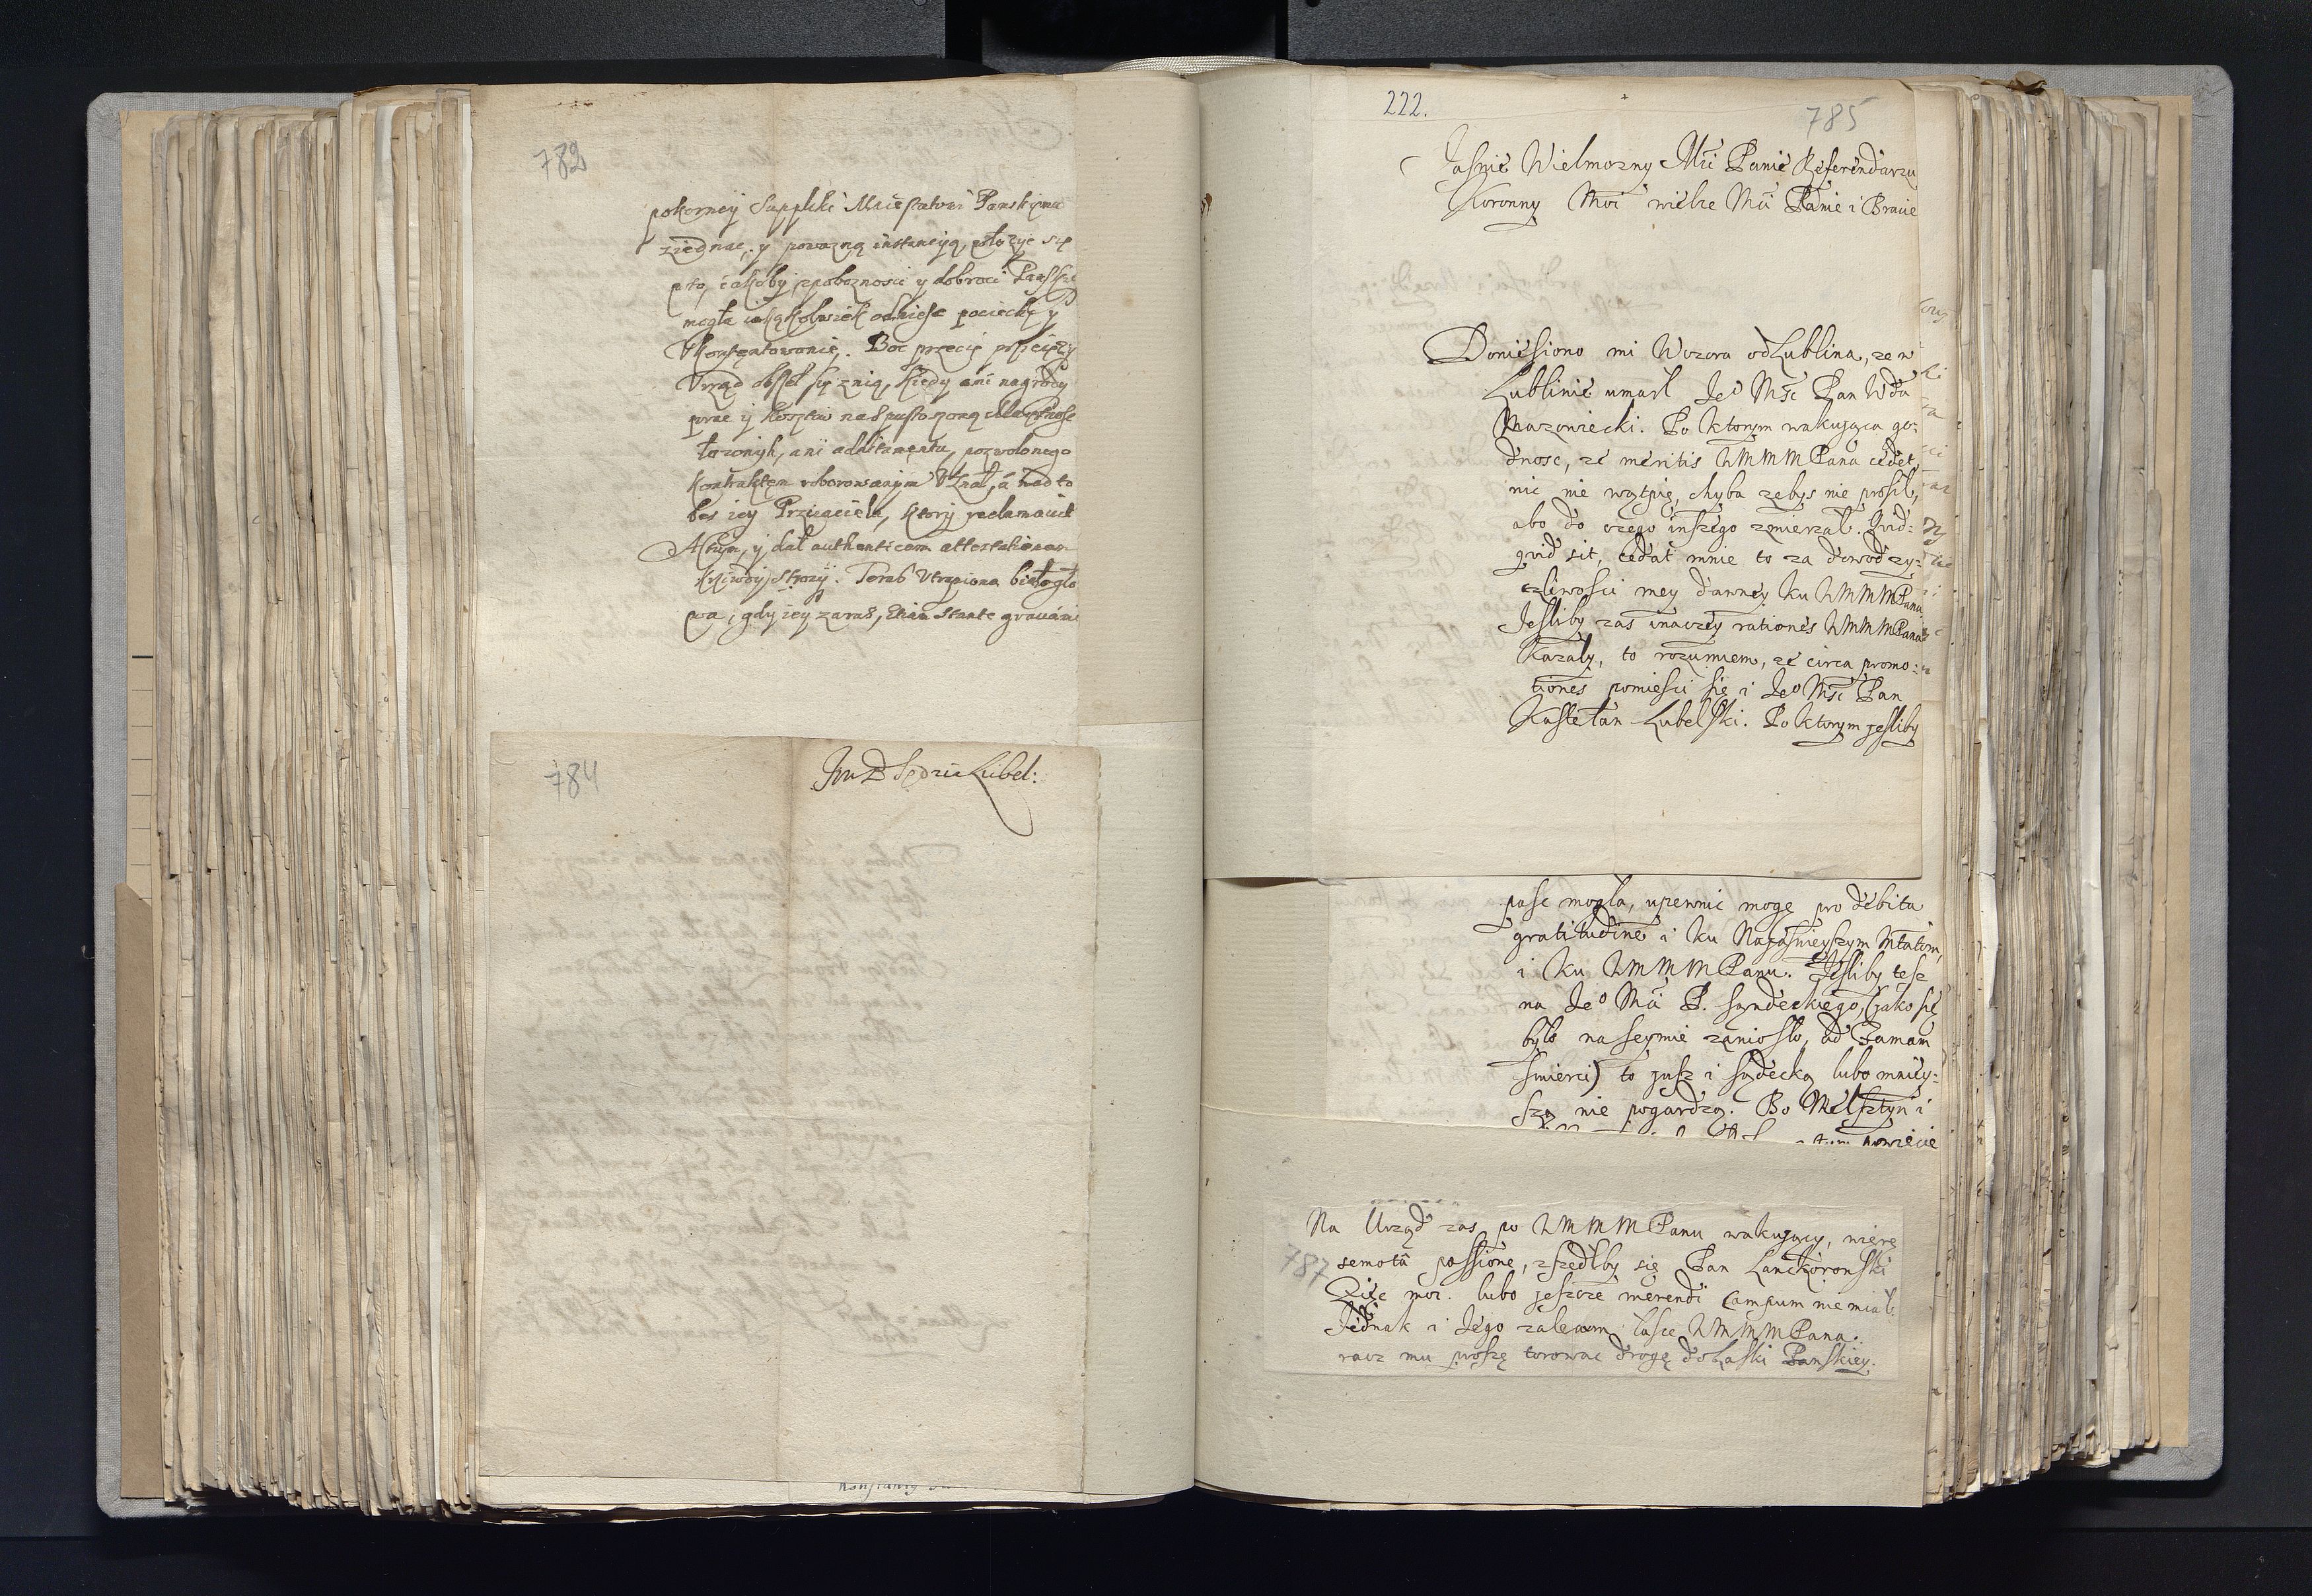 782
pokorney Suppliki Maiestatowi Panskięmu
ziednac, y powazną instancyią, włozyc się
o to, iakoby z poboznosci y dobroci Panskiey
mogła iakąkolwiek odniesc pociechę y
Vkontętowanie. Boc przecię
Vrząd obszet się znią, kiedy ani nagrody
prac y kosztow nad spustoszoną Maiętnosc
łozonych, ani additamentu, pozwolonego
kontraktem roborowanym Vznał, a nad to
bes iey Przyiaciela, ktory reclamavit
Actum, y dał authenticam attestationem
krzywdy strony. Teras Vtrapiona białogło
wa, gdy iey zaras, etiam stante gravami
784
Jm P Sędzia Lubel:
222.
785
Jasnie Wielmozny Mci Panie Referendarzu
Koronny Moi wielce Mci Panie i Bracie
Doniesiono mi Wczora od Lublina, ze w
Lublinie umarl Jeo Msc Pan Wda
Mazowiecki. Po ktorym wakująca go:
dnosc, ze meritis WMMMPana cedet,
nic nie wątpię, chyba zebys nie prosil,
abo do czego inszego zmierzal. Quid:
quid sit, cedat mnie to za dowod zy:
czliwosci mey dawney ku WMMMPanu
Jesliby zas inaczey rationes WMMMPana
kazaly, to rozumiem, ze circa promo:
tiones pomiesci się i Jeo Msc Pan
Kasztelan Lubelski. Po ktorym jesliby
pasc mogla, upewnic mogę pro debita
gratitudine i ku Najasnieyszym Mtatom,
i ku WMMMPanu. Jesliby tesz
na Jeo Mci P. Sąndeckiego, (jako się
było na seymie zaniosło, ad famam
smierci) to jusz i sądecką lubo mniey:
szą nie pogardzą. Bo Melsztyn i
powiecie
787
Na Urząd zas po WMMMPanu wakujący, wierę
semotâ passione, zszedlby się Pan Lanckoronski
Zięc moi. lubo jeszcze merendi campum nie mial.
Jednak i Jego zalecam łasce WMMMPana.
racz mu proszę torowac drogę do Laski Panskiey.